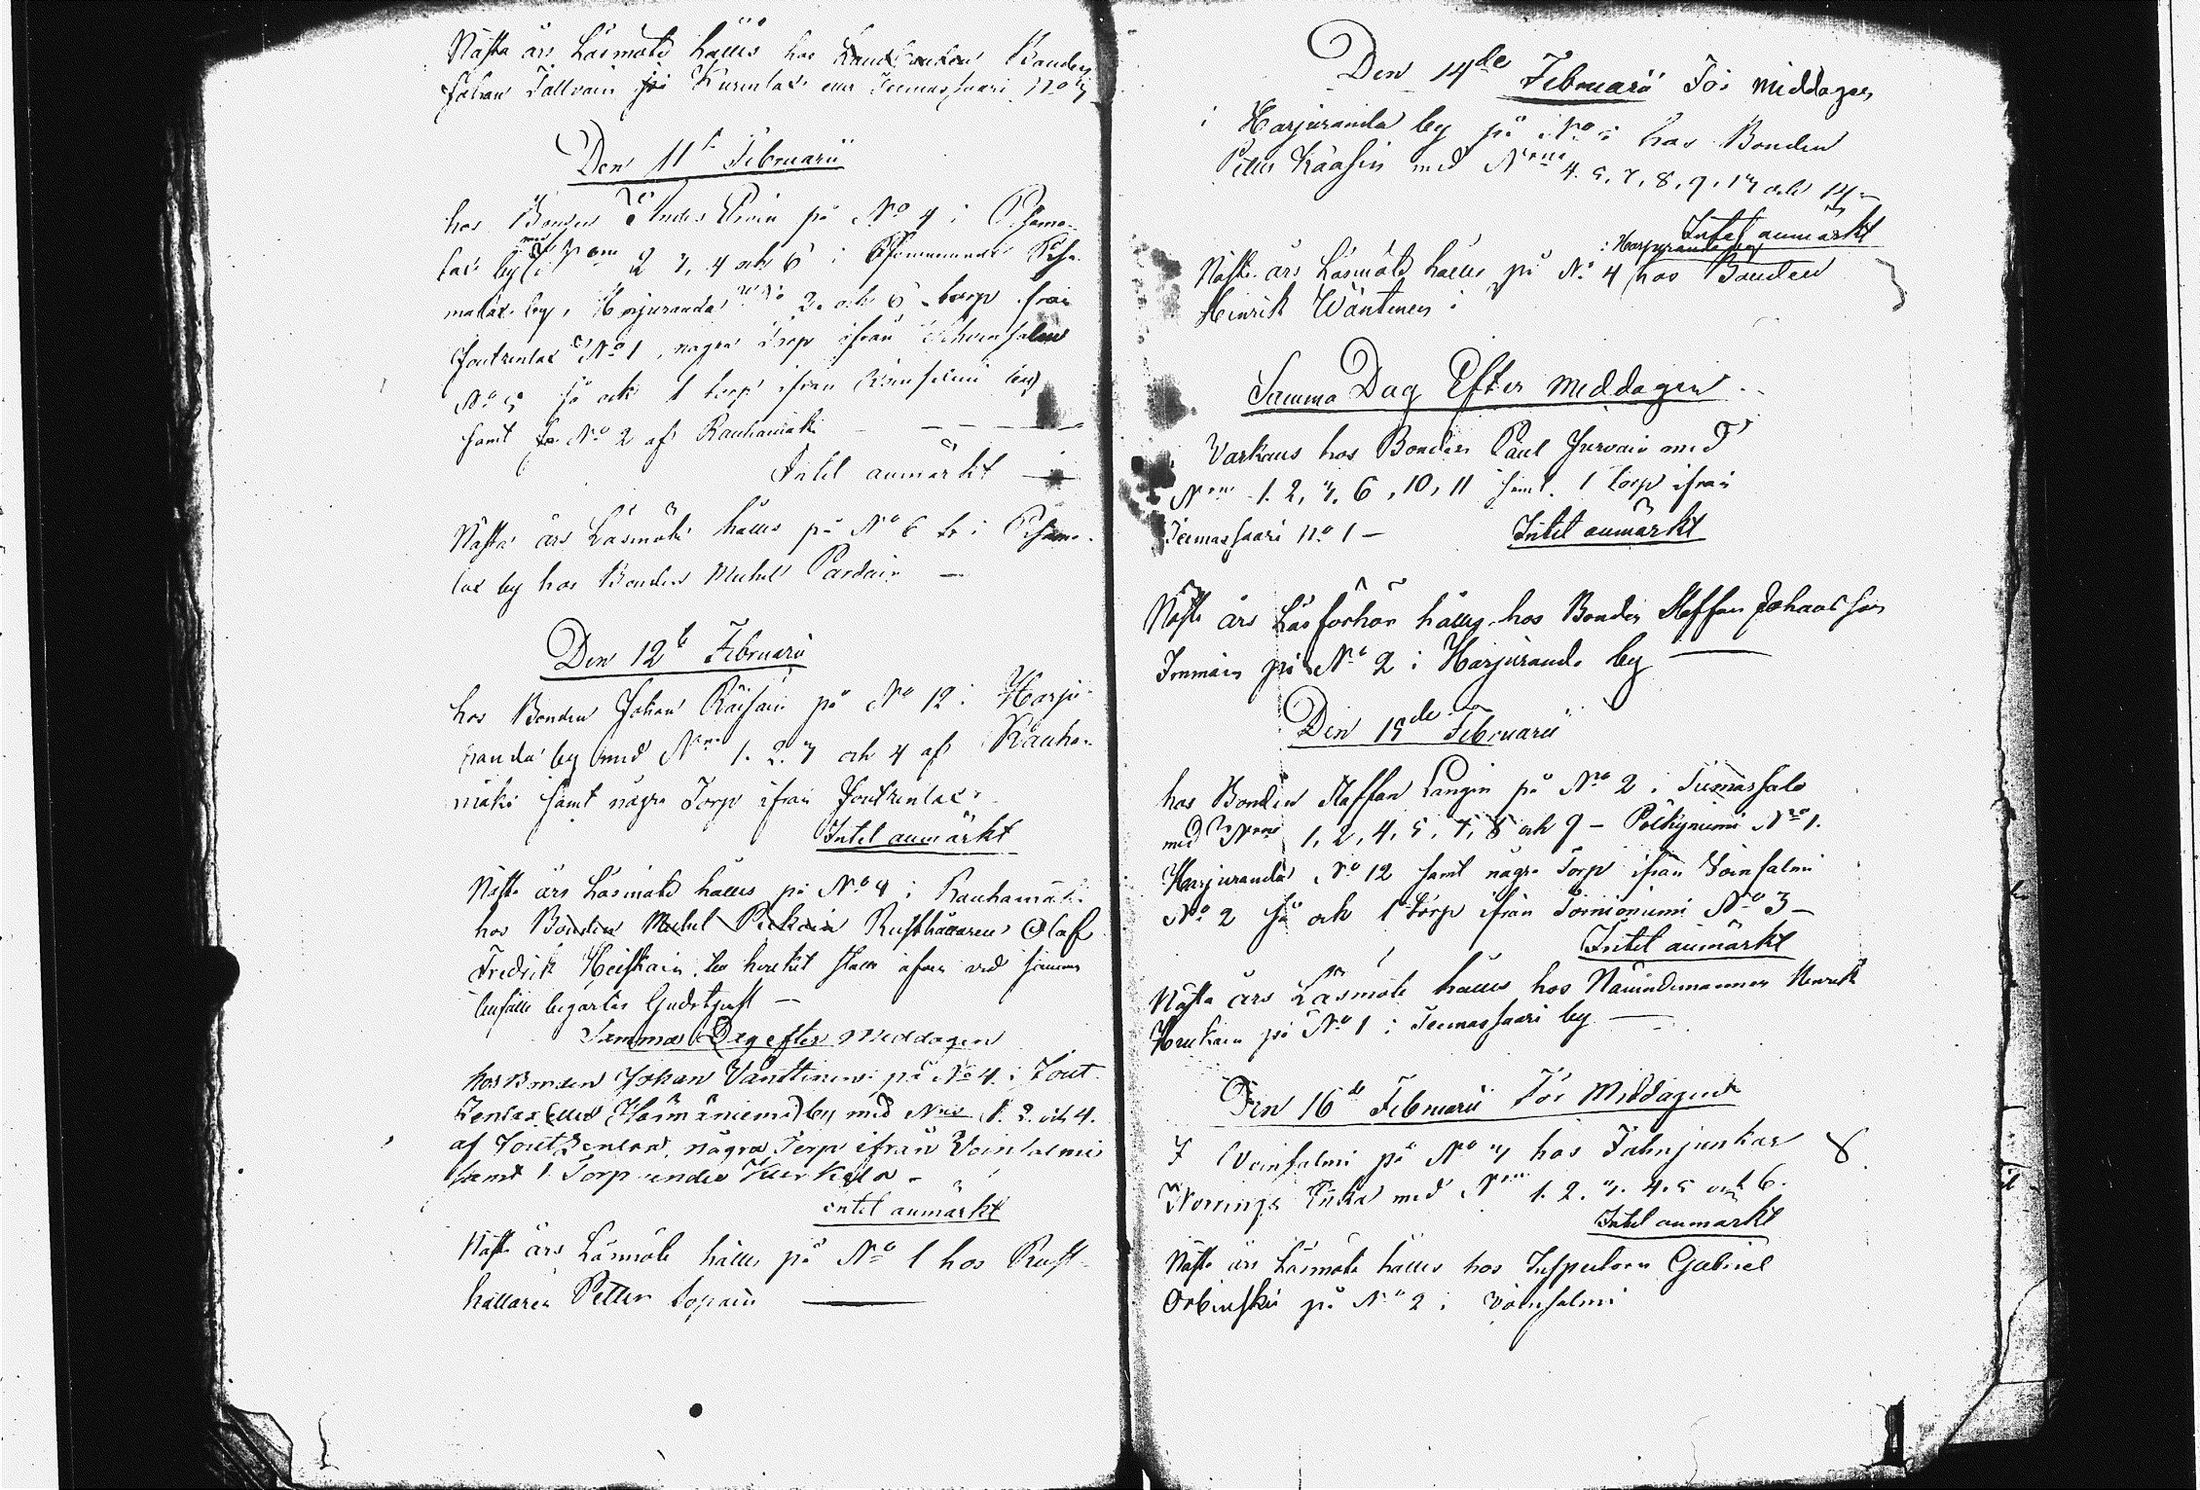 Nästa års Läsmöte hålles hos Bonden
Johan Tallvain på Kurenlax eller Teemassaari No 3
Den 11te Februarii
hos Bonden Anders Pivin på No 4 i Pihama-
lax by med Nrne 2, 3, 4 och 6 i
malax by, Harjuranda No 2 och 6 torp från
Joutzenlax No 1, några Torp ifrån
No 5 så ock 1 torp ifrån Voinsalmi by
samt No 2 af Rauhamäki
Intet anmärkt
Nästa års Läsmöte hålles på No 6 i Pihama-
lax by hos Bonden Michel Pardain
Den 12te Februarii
hos Bonden Johan Räisain på No 12 i Harju-
randa by med Nrne 1. 2. 3 och 4 af Rauha-
mäki samt några Torp ifrån Joutzenlax
Intet anmärkt
Nästa års Läsmöte hålles på No 4 i Rauhamäki
hos Bonden Michel Pekkain Rusthållaren Olaf
Fredrik Heiskain
Samma Dag efter Middagen
hos Bonden Johan Vänttinen på No 4 i Jout-
zenlax eller Härmäniemi by med Nris 1. 2. och 4.
af Joutzenlax, några Torp ifrån Voinsalmi
samt 1 Torp under Kurkela
intet anmärkt
Nästa års Läsmöte hålles på No 1 hos Rust-
hållaren Petter Lopain
Den 14de Februarii För middagen
i Harjuranda by på No 5 hos Bonden
Petter Kääsin med Nrne 4. 5, 7, 8, 9, 13 och 14
Intet anmärkt
i Harjuranda by
Nästa års Läsmöte hålles på No 4 hos Bonden
Henrik Wäntinen
Samma Dag Efter Middagen
Varkaus hos Bonden Paul Hurvain med
Nrne 1. 2, 3, 6, 10, 11 samt 1 torp ifrån
Teemassaari No 1
Intet anmärkt
Nästa års Läsförhör hålles hos Bonden Staffan Johansson
Immain på No 2 i Harjuranda by
Den 15de Februarii
hos Bonden Staffan Pangin på No 2 i Teemassalo
med Nrne 1, 2, 4, 5, 7, 8 och 9 - Pölkyniemi No 1.
Harjuranda No 12 samt några Torp ifrån Voinsalmi
No 2 så ock 1 Torp ifrån Tornioniemi No 3
Intet anmärkt
Nästa års Läsmöte hålles hos Nämndemannen Henrik
på No 1 i Teemassaari by
Den 16de Februarii För Middagen
I Voinsalmi på No 3 hos Fahnjunkar
Norrings Enka med Nrne 1. 2. 3. 4. 5 och 6.
Intet anmärkt
Nästa års Läsmöte hålles hos Inspectoren Gabriel
Orbinski på No 2 i Voinsalmi